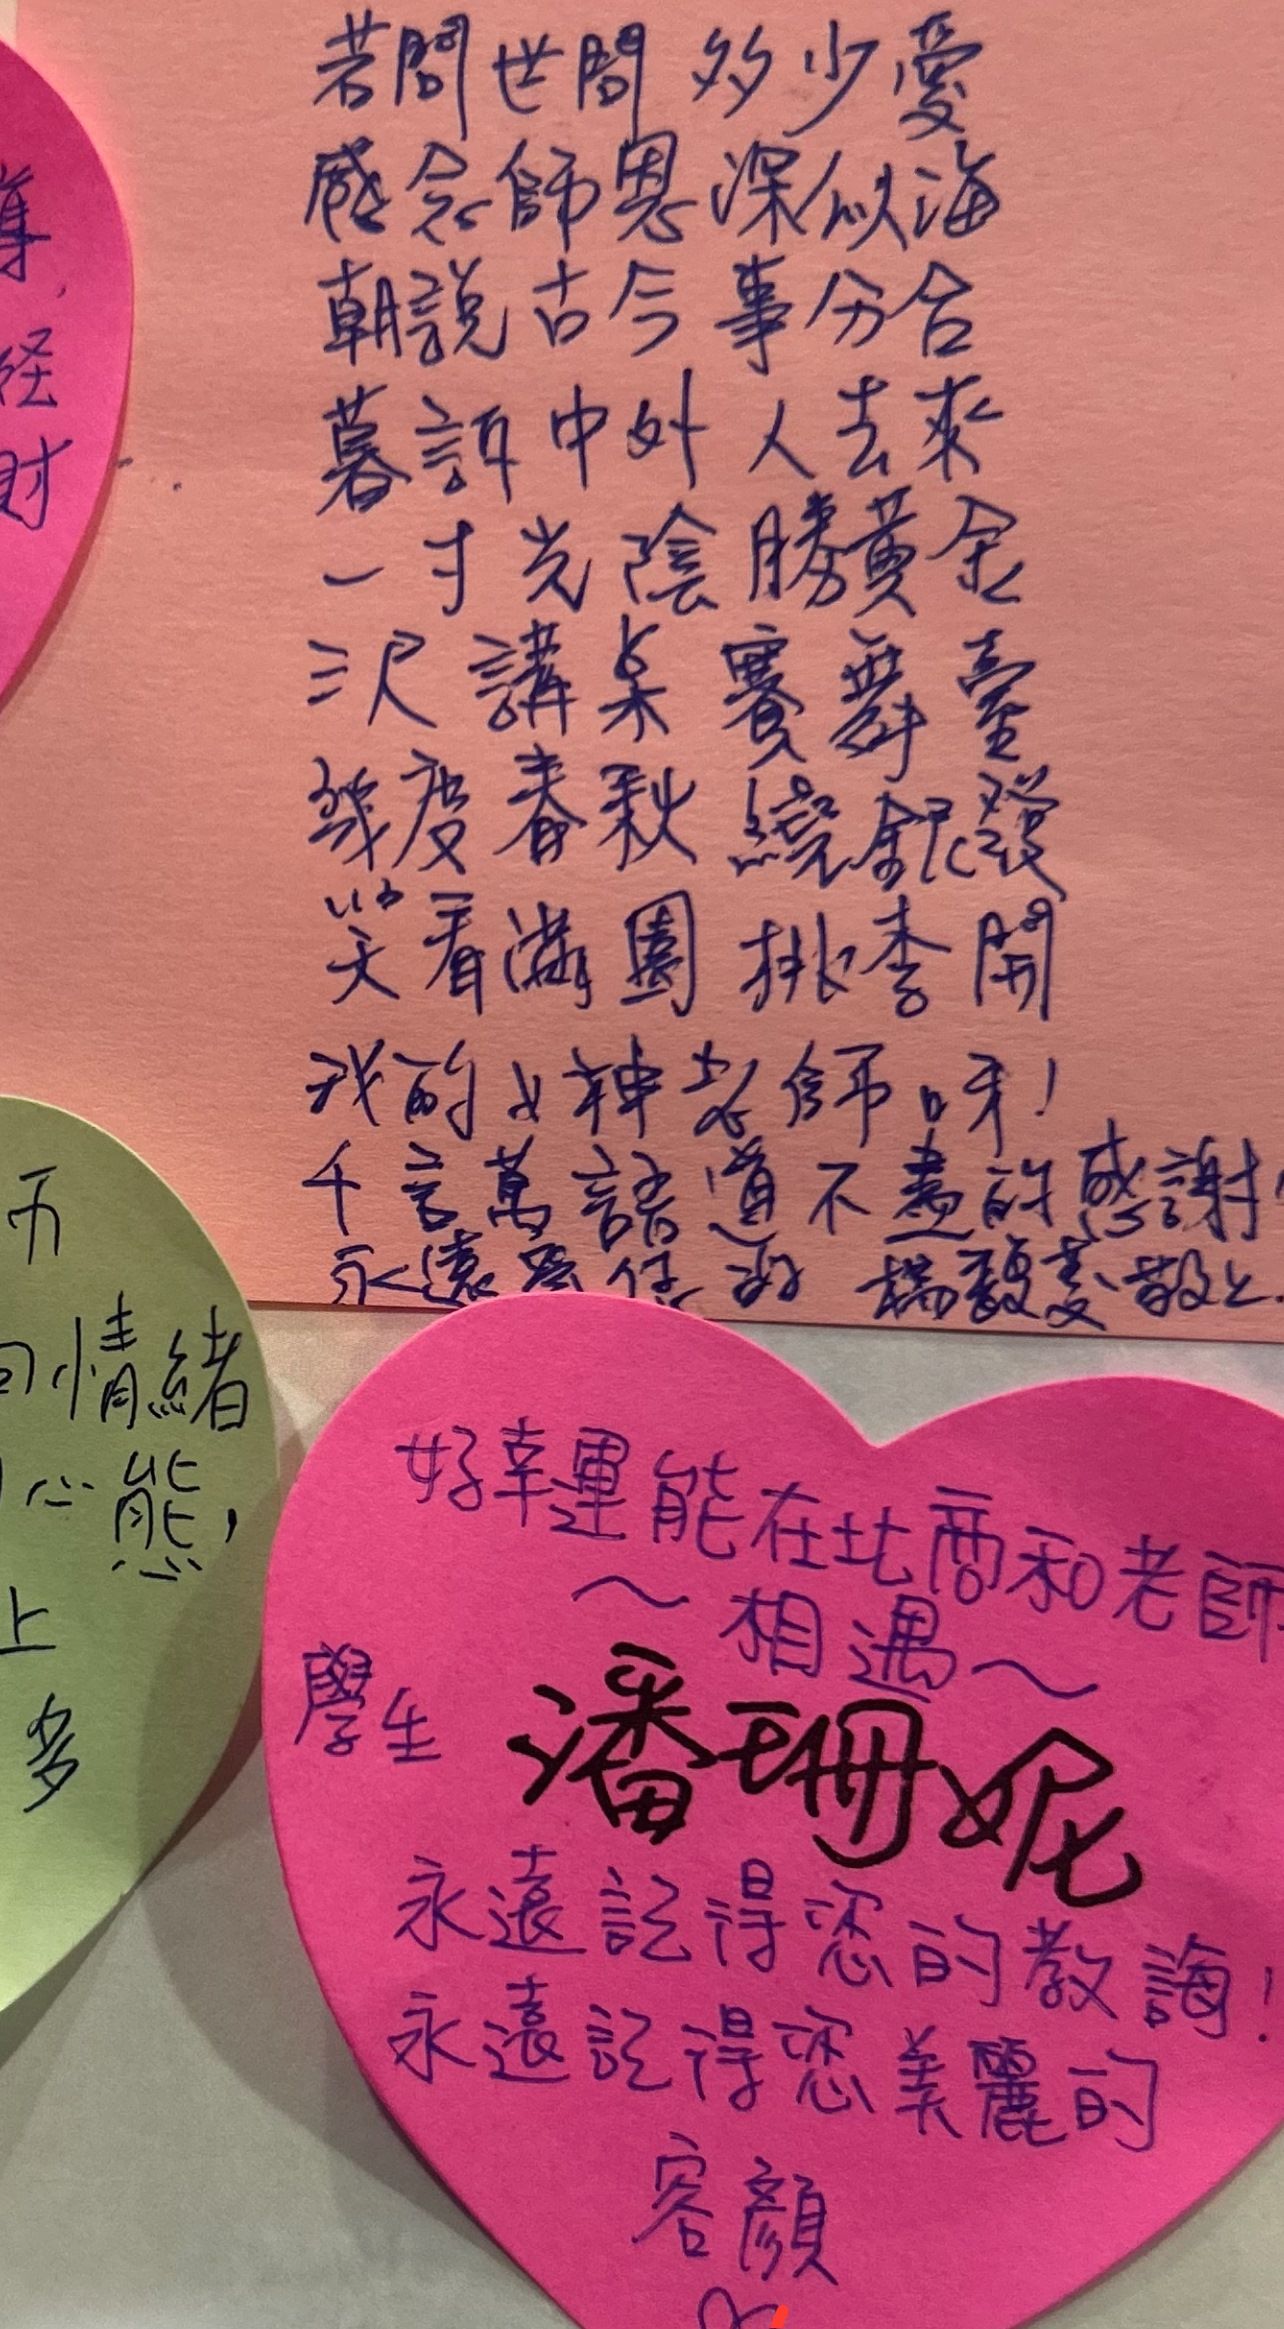 若問世間多少愛
感念師恩深似海
朝說古今事分合
暮評中外人去來
一寸光陰勝黃金
三尺講桌賽舞臺
幾度春秋繞銀發
笑看滿園桃李開
我的女神老師呀!
千言萬語道不盡的感謝!
永遠愛你的 楊馥蔓敬上.
導,
経
財
币
情緒
心態,
上
多
好幸運能在北商和老師
～相遇～
學生
潘珊妮
永遠記得您的教誨!
永遠記得您美麗的
容顏